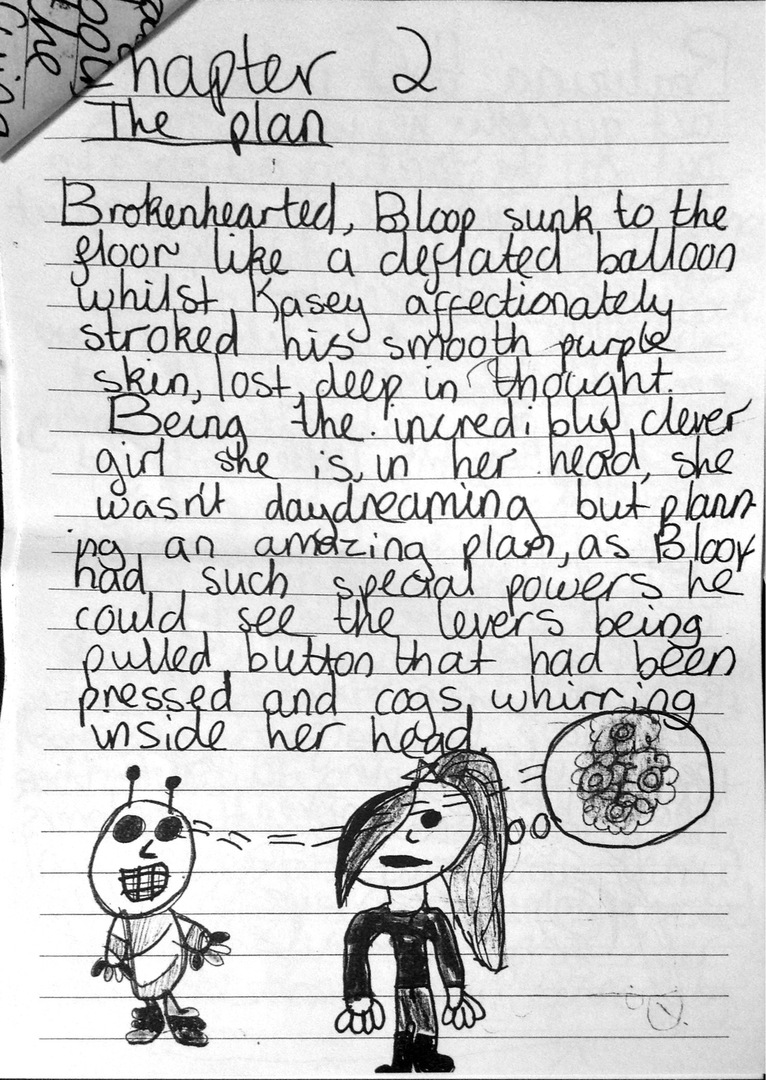 the
Chapter 2
The plan
Brokenhearted, Bloop sunk to the
floor like a deflated balloon
whilst Kasey affectionately
stroked his smooth purple
skin, lost, deep in thought.
Being the incredibly clever
girl she is, in her head, she
wasn't daydreaming but plann
ing an amazing plan, as Bloop
had such special powers he
could see the levers being
pulled, button that had been
pressed and cogs whirring
inside her head.